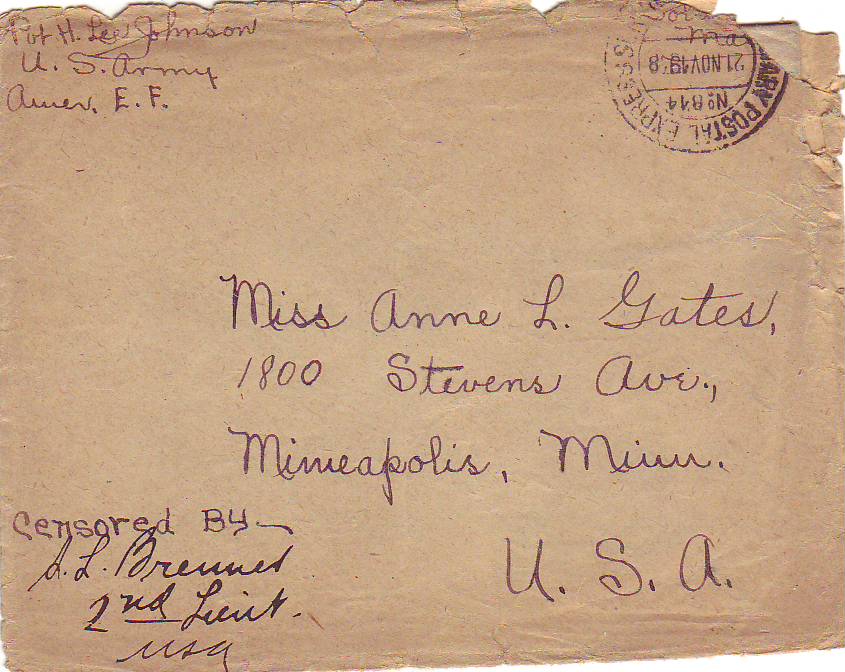 Pvt H. Lee Johnson
U. S. Army
Amer. E. F.
MILITARY POSTAL EXPRESS
21 NOV 1918
No 814
Miss Anne L. Gates,
1800 Stevens Ave.,
Minneapolis, Minn.
U. S. A.
Censored By
2nd Lieut.
USA